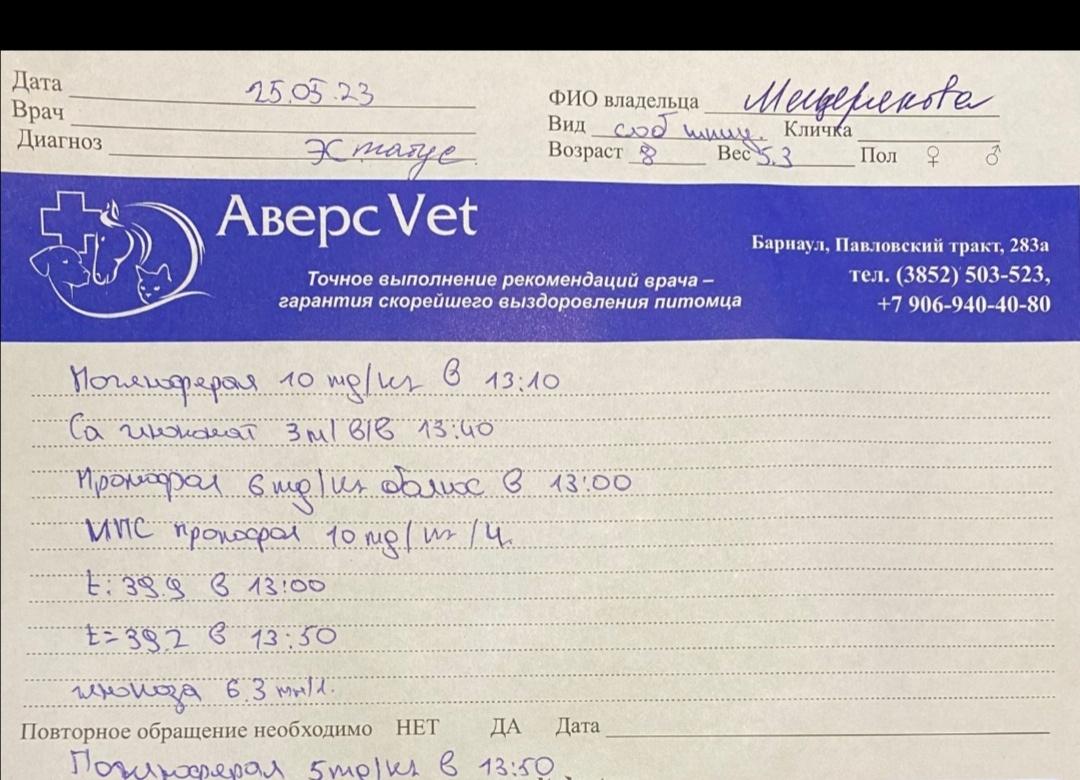 Дата 25.05.23
Врач
Диагноз Эстатус
ФИО владельца Мещерякова
Вид соб шпиц. Кличка
Возраст 8 Вес 5.3 Пол ♀ ♂
Аверс Vet
Точное выполнение рекомендаций врача –
гарантия скорейшего выздоровления питомца
Барнаул, Павловский тракт, 283а
тел. (3852) 503-523,
+7 906-940-40-80
10 mg/кг в 13:10
Ca глюконат 3 ml в/в 13:40
Пропофол 6 mg/кг болюс в 13:00
ИПС пропофол 10 mg/кг/ч.
t: 39.9 в 13:00
t= 39.2 в 13:50
глюкоза 6.3
Повторное обращение необходимо НЕТ ДА Дата
5 mg/кг в 13:50.